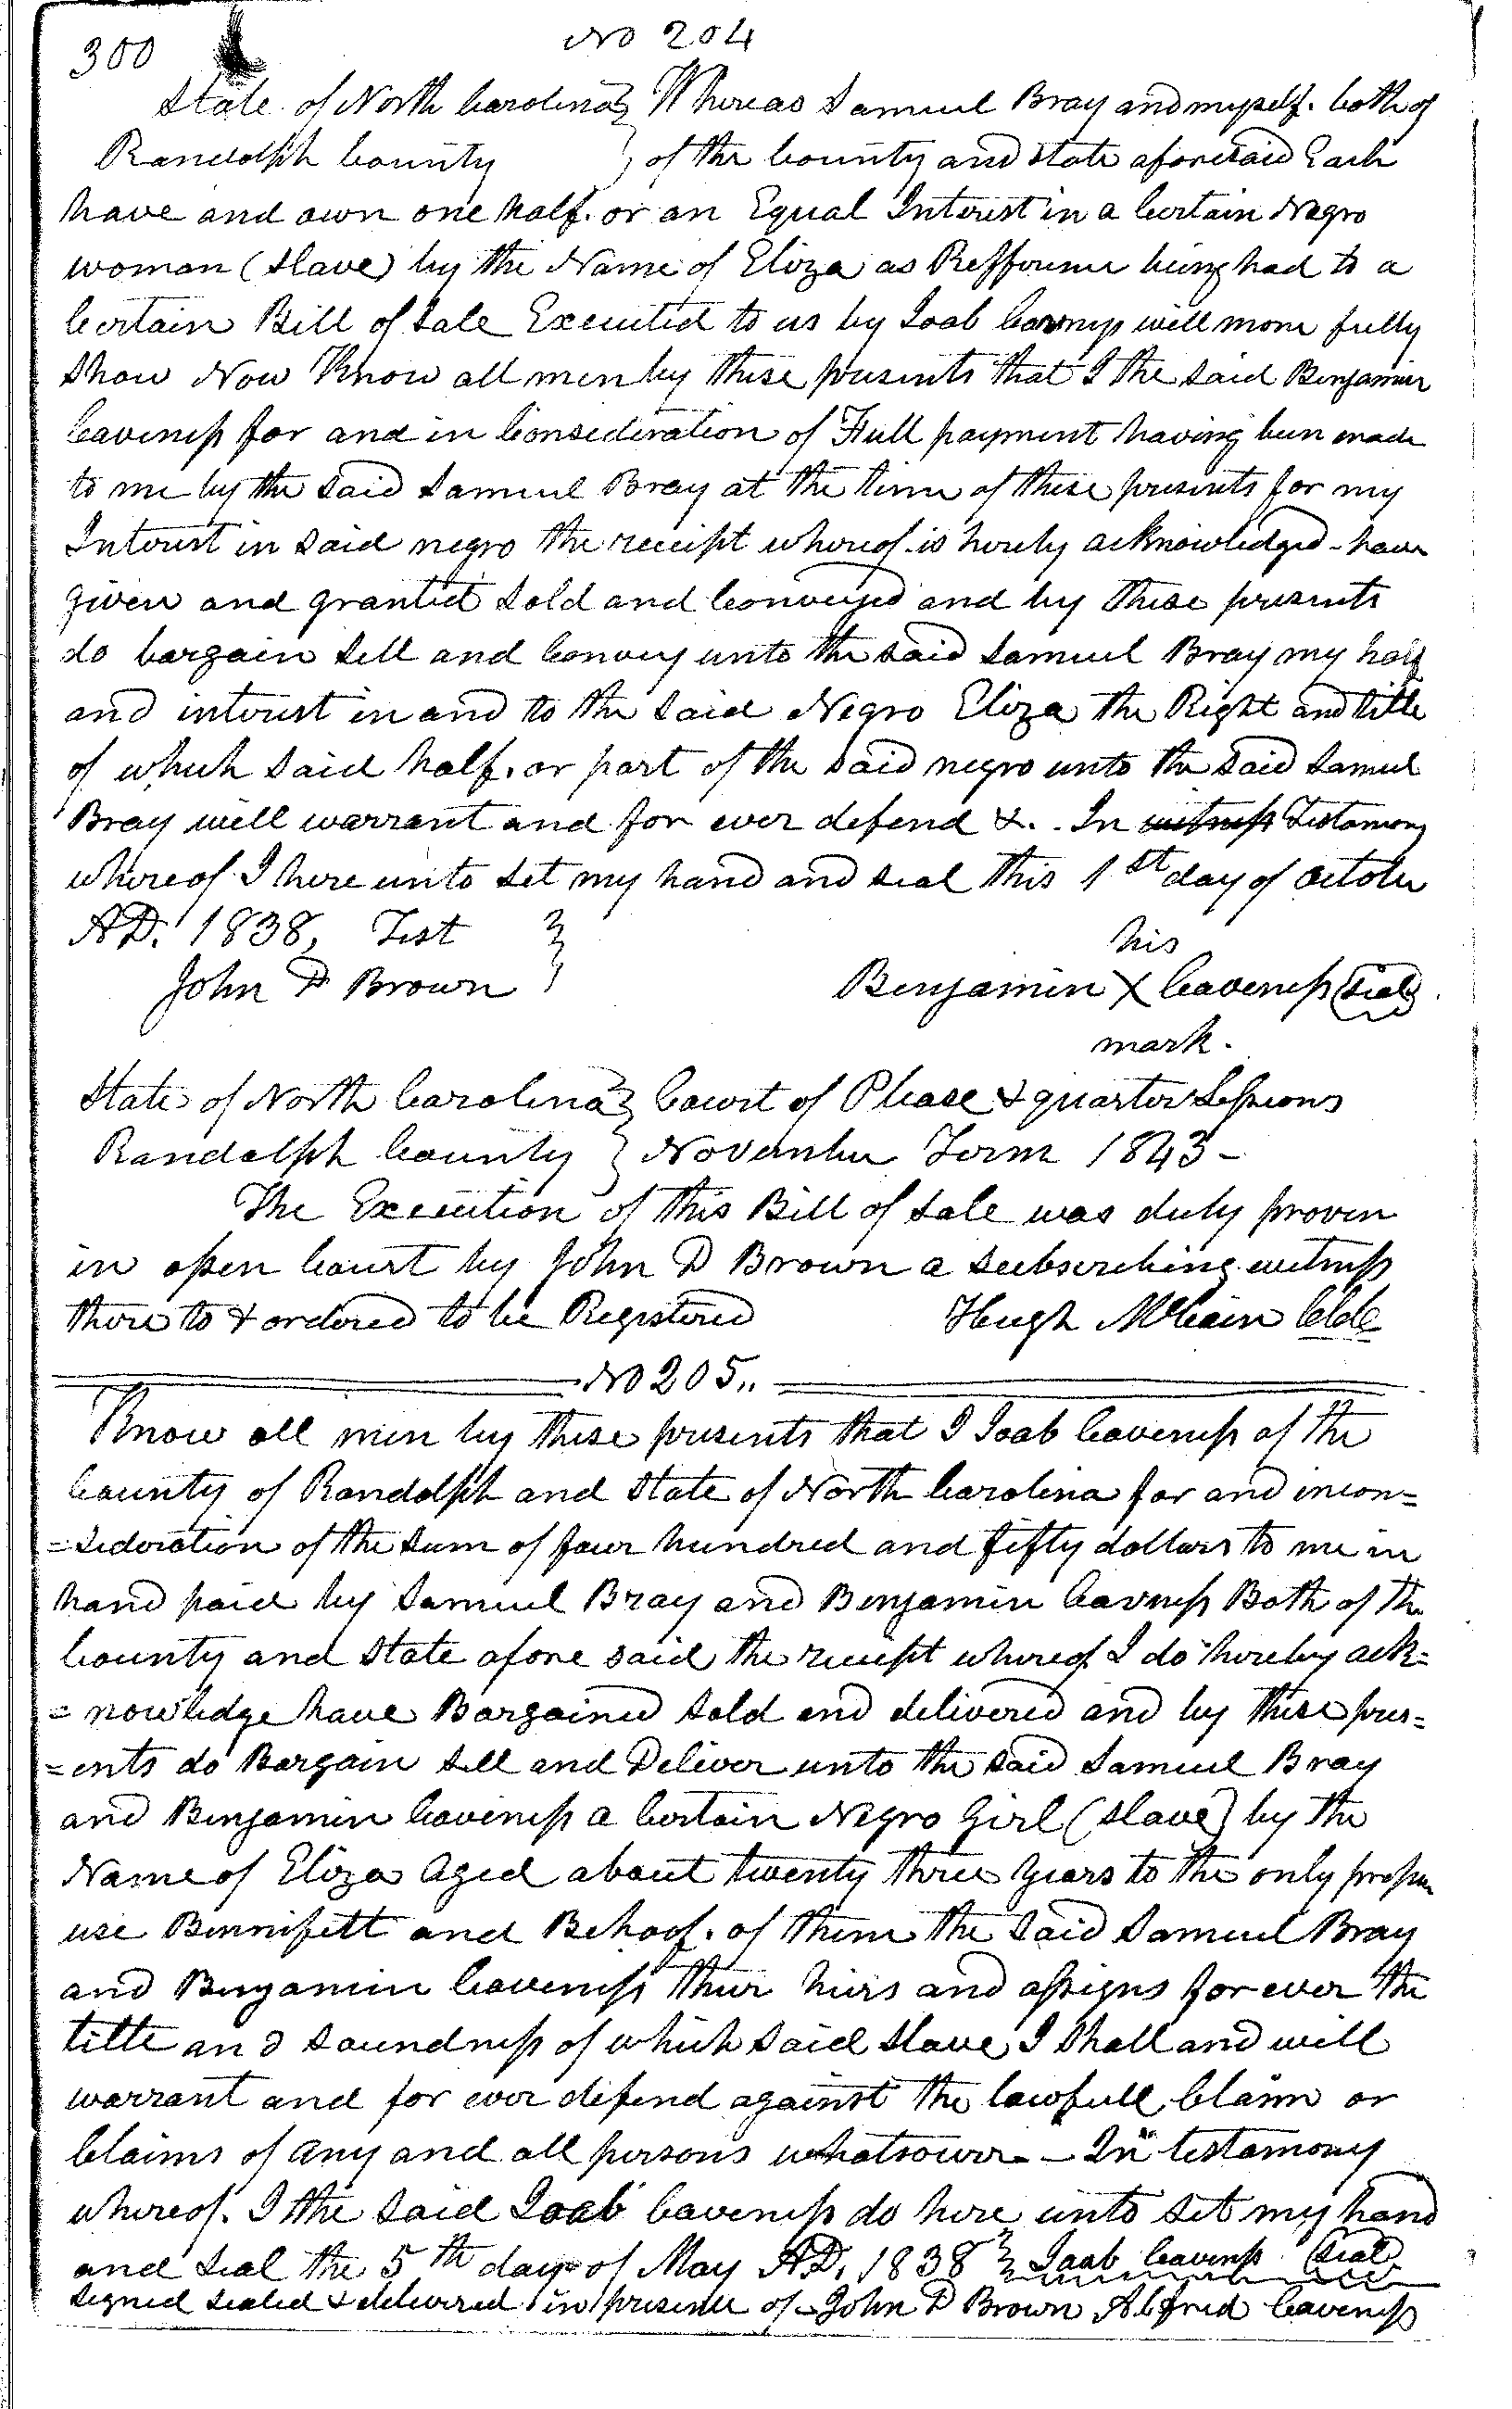 300
No 204
State of North Carolina } Whereas Samuel Bray and myself. both of
Randolph County } of the County and State aforesaid Each
have and own one half. or an Equal Interest in a Certain Negro
woman (Slave) by the Name of Eliza as Refference being had to a
Certain Bill of Sale Executed to us by Joab Caveness will more fully
Show Now Know all men by these presents that I the Said Benjamin
Caveness for and in Consideration of Full payment having been made
to me by the Said Samuel Bray at the time of these presents for my
Interest in Said negro the receipt whereof is hereby acknowledged - have
given and granted Sold and Conveyed and by these presents
do bargain Sell and Convey unto the Said Samuel Bray my half
and interest in and to the Said Negro Eliza the Right and title
of which Said half. or part of the Said negro unto the Said Samuel
Bray will warrant and for ever defend &. . In witness Testamony
whereof I here unto Set my hand and Seal this 1st day of October
AD. 1838, Test }
his
John D Brown } Benjamin X Caveness (Seal)
mark.
State of North Carolina } Court of Please & quarter Sessions
Randolph County } November Term 1843 -
The Execution of this Bill of Sale was duly proven
in open Court by John D Brown a Subscribing witness
there to & ordered to be Registered Hugh McCain Clk
No 205..
Know all men by these presents that I Joab Caveness of the
County of Randolph and State of North Carolina for and in con=
=sideration of the Sum of four hundred and fifty dollars to me in
hand paid by Samuel Bray and Benjamin Cavness Both of the
County and State afore said the receipt whereof I do hereby ack=
=nowledge have Bargained Sold and delivered and by these pres=
=ents do Bargain Sell and Deliver unto the Said Samuel Bray
and Benjamin Caveness a Certain Negro Girl (Slave) by the
Name of Eliza aged about twenty three years to the only proper
use Bennifitt and Behoof. of them the Said Samuel Bray
and Benjamin Caveness their heirs and assigns for ever the
title and Soundness of which Said Slave I Shall and will
warrant and for ever defend against the lawfull Claim or
Claims of any and all persons whatsoever - In testamony
whereof. I the Said Joab Caveness do here unto Set my hand
and Seal the 5th day of May AD. 1838 } Joab Caveness (Seal)
Signed Sealed & delivered in presence of John D Brown Alfred Caveness